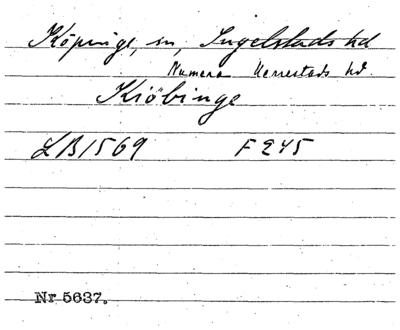 Köpinge, sn, Ingelstads hd
Numera Herrestads hd.
Kiöbinge
LB 1569 F 245
Nr 5637.